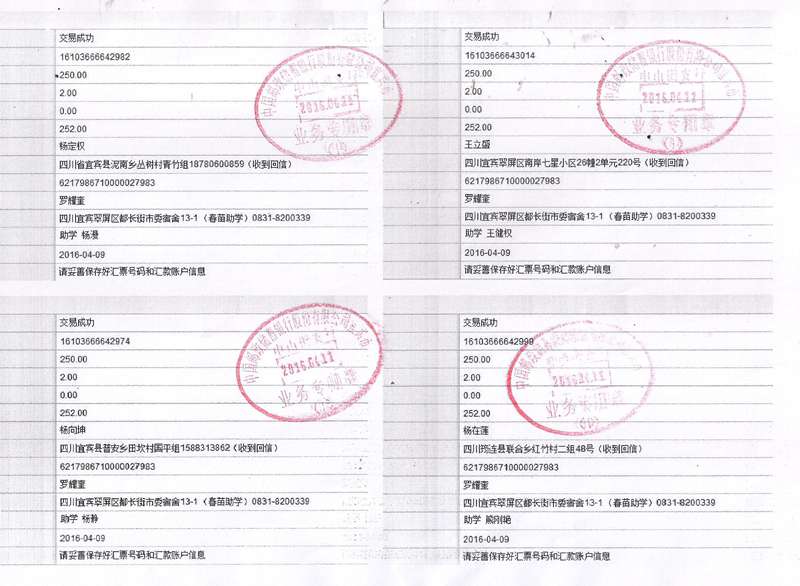 交易成功
16103666642982
250.00
2.00
0.00
252.00
杨定权
四川省宜宾县泥南乡丛树村青竹组18780600859（收到回信）
6217986710000027983
罗耀奎
四川宜宾翠屏区都长街市委宿舍13-1（春苗助学）0831-8200339
助学 杨漫
2016-04-09
请妥善保存好汇票号码和汇款账户信息
2016.04.11
业务专用章
交易成功
16103666643014
250.00
2.00
0.00
252.00
王立盛
四川宜宾翠屏区南岸七星小区26幢2单元220号（收到回信）
6217986710000027983
罗耀奎
四川宜宾翠屏区都长街市委宿舍13-1（春苗助学）0831-8200339
助学 王健权
2016-04-09
请妥善保存好汇票号码和汇款账户信息
2016.04.11
业务专用章
交易成功
16103666642974
250.00
2.00
0.00
252.00
杨向坤
四川宜宾县普安乡田坎村国平组1588313862（收到回信）
6217986710000027983
罗耀奎
四川宜宾翠屏区都长街市委宿舍13-1（春苗助学）0831-8200339
助学 杨静
2016-04-09
请妥善保存好汇票号码和汇款账户信息
2016.04.11
业务专用章
交易成功
16103666642990
250.00
2.00
0.00
252.00
杨在莲
四川筠连县联合乡红竹村二组48号（收到回信）
6217986710000027983
罗耀奎
四川宜宾翠屏区都长街市委宿舍13-1（春苗助学）0831-8200339
助学 熊刚艳
2016-04-09
请妥善保存好汇票号码和汇款账户信息
2016.04.11
业务专用章